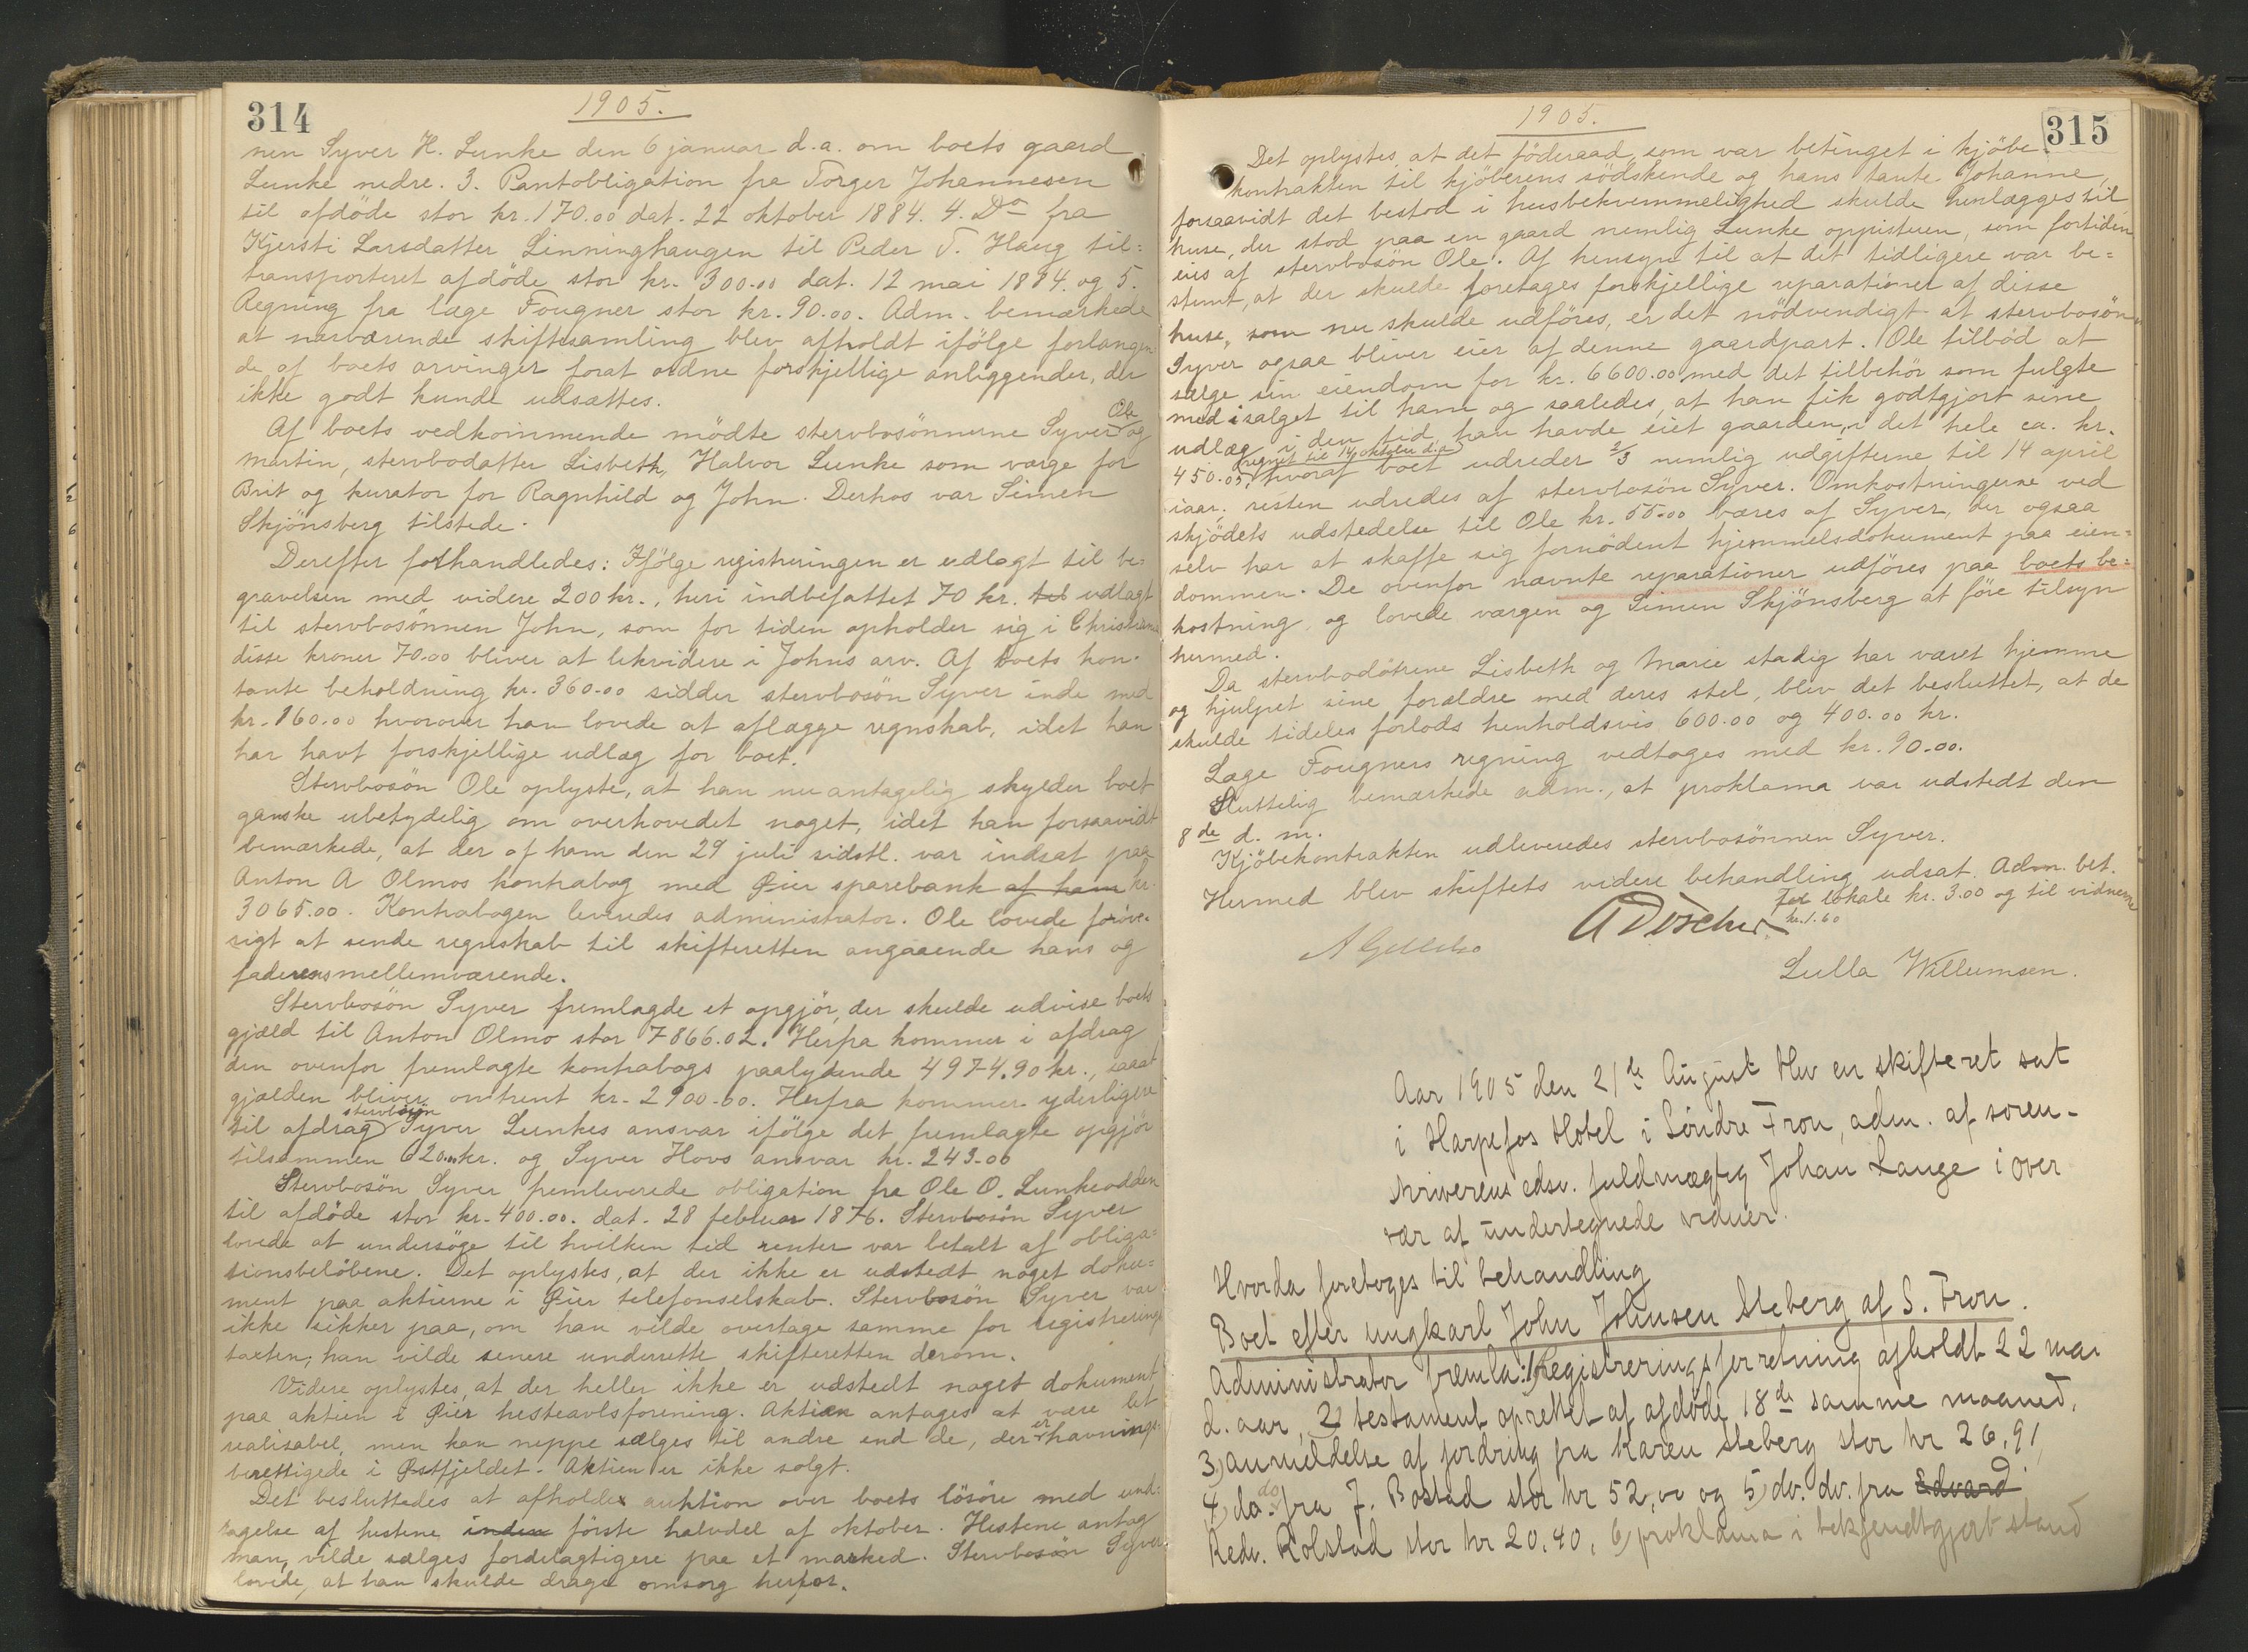 314
1905.
nen Syver H. Lunke den 6 januar d.a. om boets gaard
Lunke nedre. 3. Pantobligation fra Torger Johannesen
til afdöde stor kr. 170.00 dat. 22 oktober 1884. 4. Do fra
Kjersti Larsdatter Linninghaugen til Peder T. Haug til=
transporteret afdöde stor kr. 300.00 dat. 12 mai 1884. og 5.
Regning fra læge Fougner stor kr. 90.00. Adm. bemærkede
at nærværende skiftesamling blev afholdt ifölge forlangen
de af boets arvinger forat ordne forskjellige anliggender, der
ikke godt kunde udsættes.
Af boets vedkommende mödte stervbosönnerne Syver Ole og
Martin, stervbodatter Lisbeth, Halvor Lunke som værge for
Brit og kurator for Ragnhild og John. Derhos var Simen
Skjönsberg tilstede.
Derefter forhandledes: Ifölge registreringen er udlagt til be-
gravelsen med videre 200 kr., heri indbefattet 70 kr. til udlagt
til stervbosönnen John, som for tiden opholder sig i Christiania
disse kroner 70.00 bliver at likvidere i Johns arv. Af boets kon-
tante beholdning kr. 360.00 sidder stervbosön Syver inde med
kr. 160.00 hvorover han lovede at aflægge regnskab, idet han
har havt forskjellige udlæg for boet.
Stervbosön Ole oplyste, at han nu antagelig skylder boet
ganske ubetydelig om overhovedet noget, idet han forsaavidt
bemærkede, at der af ham den 29 juli sidstl. var indsat paa
Anton A Olmos kontrabog med Øier sparebank af ham kr.
3065.00. Kontrabogen leveredes administrator. Ole lovede foröv-
rigt at sende regnskab til skifteretten angaaende hans og
faderens mellemværende.
Stervbosön Syver fremlagde et opgjör, der skulde udvise boets
gjæld til Anton Olmo stor 7866.02. Herfra kommer i afdrag
den ovenfor fremlagte kontrabogs paalydende 4974.90 kr., saaat
gjælden bliver omtrent kr. 2900.00. Herfra kommer yderligere
til afdrag stervbosön Syver Lunkes ansvar ifölge det fremlagte opgjör
tilsammen 620.00 kr. og Syver Hovs ansvar kr. 243.00
Stervbosön Syver fremleverede obligation fra Ole O. Lunkeodden
til afdöde stor kr. 400.00. dat. 28 februar 1876. Stervbosön Syver
lovede at undersöge til hvilken tid renter var betalt af obliga=
tionsbelöbene. Det oplystes, at der ikke er udstedt noget doku=
ment paa aktierne i Øier telefonselskab. Stervbosön Syver var
ikke sikker paa, om han vilde overtage samme for registrerings
taxten; han vilde senere underrette skifteretten derom.
Videre oplystes, at der heller ikke er udstedt noget dokument
paa aktien i Øier hesteavlsforening. Aktien antages at være let
realisabel, men kan neppe sælges til andre end de, der er havnings-
berettigede i Østfjeldet. Aktien er ikke solgt.
Det besluttedes at afholde auktion over boets lösöre med und=
tagelse af hestene inden förste halvdel af oktober. Hestene antog
man, vilde sælges fordelagtigere paa et marked. Stervbosön Syver
lovede, at han skulde drage omsorg herfor.
315
1905.
Det oplystes, at det föderaad, som var betinget i kjöbe-
kontrakten til kjöberens södskende og hans tante Johanne,
forsaavidt det bestod i husbekvemmelighed skulde henlægges til
huse, der stod paa en gaard nemlig Lunke oppistuen, som fortiden
eies af stervbosön Ole. Af hensyn til at det tidligere var be=
stemt, at der skulde foretages forskjellige reparationer af disse
huse, som nu skulde udföres, er det nödvendigt at stervbosönnen
Syver ogsaa bliver eier af denne gaardpart. Ole tilböd at
sælge sin eiendom for kr. 6600.00 med det tilbehör som fulgte
med i salget til ham og saaledes, at han fik godtgjort sine
udlæg i den tid han havde eiet gaarden, i det hele ca. kr.
450.05, regnet til 14 oktober d.a. hvoraf boet udreder 2/3 nemlig udgifterne til 14 april
iaar. resten udredes af stervbosön Syver. Omkostningerne ved
skjödets udstedelse til Ole kr. 55.00 bæres af Syver, der ogsaa
selv har at skaffe sig fornödent hjemmelsdokument paa eien=
dommen. De ovenfor nævnte reparationer udföres paa boets be=
kostning og lovede værgen og Simen Skjönsberg at före tilsyn
hermed.
Da stervbodötrene Lisbeth og Marie stadig har været hjemme
og hjulpet sine forældre med deres stel, blev det besluttet, at de
skulde tildeles forlods henholdsvis 600.00 og 400.00 kr.
Læge Fougners regning vedtoges med kr. 90.00.
Sluttelig bemærkede adm., at proklama var udstedt den
8de d. m.
Kjöbekontrakten udleveredes stervbosönnen Syver.
Hermed blev skiftets videre behandling udsat. Adm. bet.
for lokale kr. 3.00 og til vidnerne
kr. 1.60
Lulla Willumsen.
Aar 1905 den 21de August blev en skifteret sat
i Harpefos Hotel i Søndre Fron, adm. af soren-
skriverens edsv. fuldmægtig Johan Lange i over
vær af undertegnede vidner.
Hvorda foretoges til behandling
Boet efter ungkarl John Johnsen Steberg af S. Fron.
Administrator fremla: 1) Registreringsforretning afholdt 22 mai
d. aar, 2) testament oprettet af afdøde 18de samme maaned,
3) anmeldelse af fordring fra Karen Steberg stor kr 26,91,
4) do. do fra J. Bostad stor kr 52,00 og 5) do. do. fra Edvard
Redv. Kolstad stor kr 20.40, 6) proklama i bekjendtgjort stand